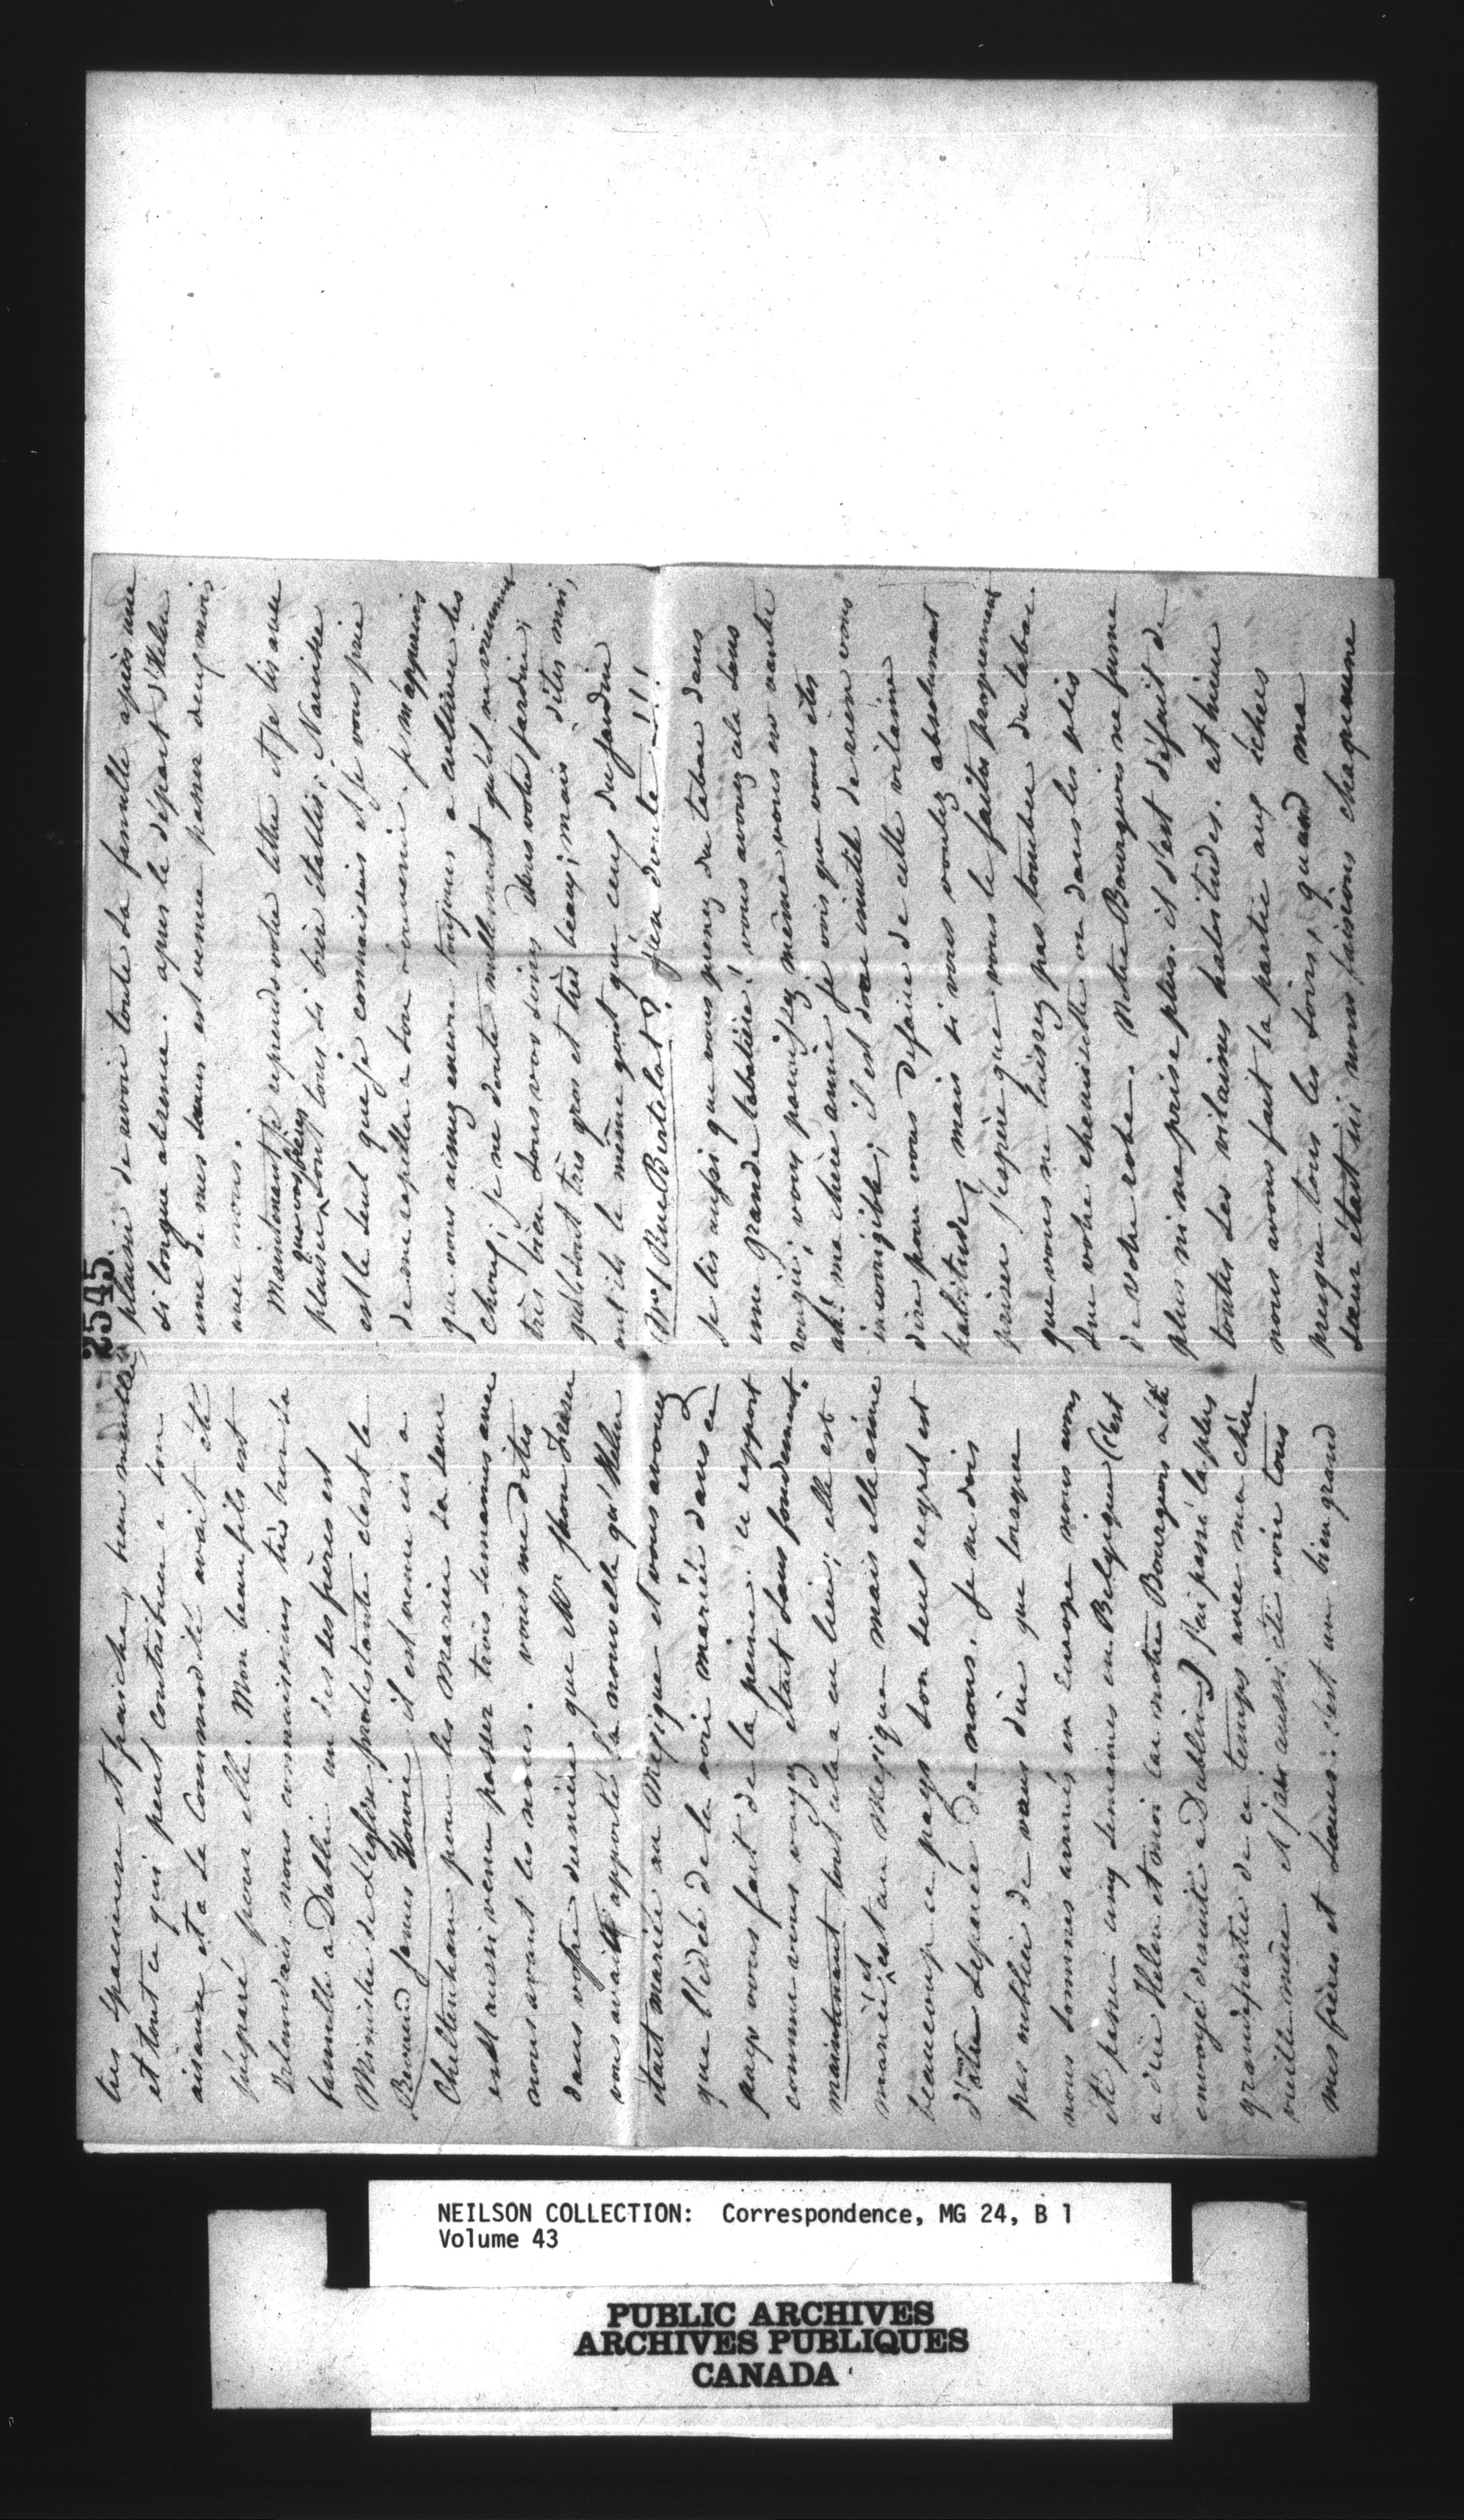 2545
très spacieuse et fraiche, bien meublée
et tout ce qui peut contribuer a son
aisance et a sa commodité avait été
préparé pour elle. Mon beau fils est
Irlandais nous connaissions très bien sa
famille a Dublin un des ses frères est
Ministre de l'église protestante c'est le
Reverend James Howie il est venu ici a
Cheltenham pour les marier sa sœur
est aussi venu passer trois semaines avec
nous avant les noces. vous me dites
dans votre dernière que Mr Fraser
vous avait apporté la nouvelle qu'Helen
etait mariée au Mexique et vous avouez
que l'idée de la voir mariée dans ce
pays vous fait de la peine. ce rapport
comme vous voyez etait sans fondement.
maintenant tout cela a eu lieu; elle est
mariée et est au Mexique mais elle aime
beaucoup ce pays son seul regret est
d'être separé de nous. Je ne dois
pas oublier de vous dire que lorsque
nous sommes arrivés en Europe nous avons
été passer cinq semaines en Belgique (c'est
a dire Helen et moi car notre Bourgeois a été
envoyé desuite a Dublin) j'ai passé la plus
grande partie de ce temps avec ma chère
vieille mère et j'ai aussi été voir tous
mes frères et sœurs: c'est un bien grand
plaisir de revoir toute sa famille après une
si longue absence. apres le départ d'Helen
une de mes sœurs est venue passer deux mois
avec nous.
Maintenant je reprends votre lettre et je lis avec
plaisir que vos frères sont tous si bien établis; Narcisse
est le seul que je connaissais et je vous prie
de me rapeller a son souvenir. je m'apperçois
que vous aimez encore toujours a cultiver les
choux; je ne doute nullement qu'ils ne viennent
très bien sous vos soins dans votre jardin;
qu'ils sont très gros et très beaux; mais dites moi,
ont ils le même gout que ceux du jardin
No 1 Rue Berthelot? J'en doute!!!
Je lis aussi que vous prenez du tabac dans
une grande tabatière! vous avouez cela sans
rougir; vous paraissez même vous en vanter
ah! ma chère amie je vois que vous êtes
incorrigible; il est donc inutile de rien vous
dire pour vous defaire de cette vilaine
habitude, mais si vous voulez absolument
priser j'espère que vous le faites proprement
que vous ne laissez pas tomber du tabac
sur votre chemisette ou dans les plis
de votre robe. Notre Bourgeois ne fume
plus ni ne prise plus. il s'est défait de
toutes ses vilaines habitudes. cet hiver
nous avons fait la partie aux échecs
presque tous les soirs, quand ma
sœur etait ici nous faisions chaqu'une
NEILSON COLLECTION: Correspondence, MG 24, B 1
Volume 43
PUBLIC ARCHIVES
ARCHIVES PUBLIQUES
CANADA